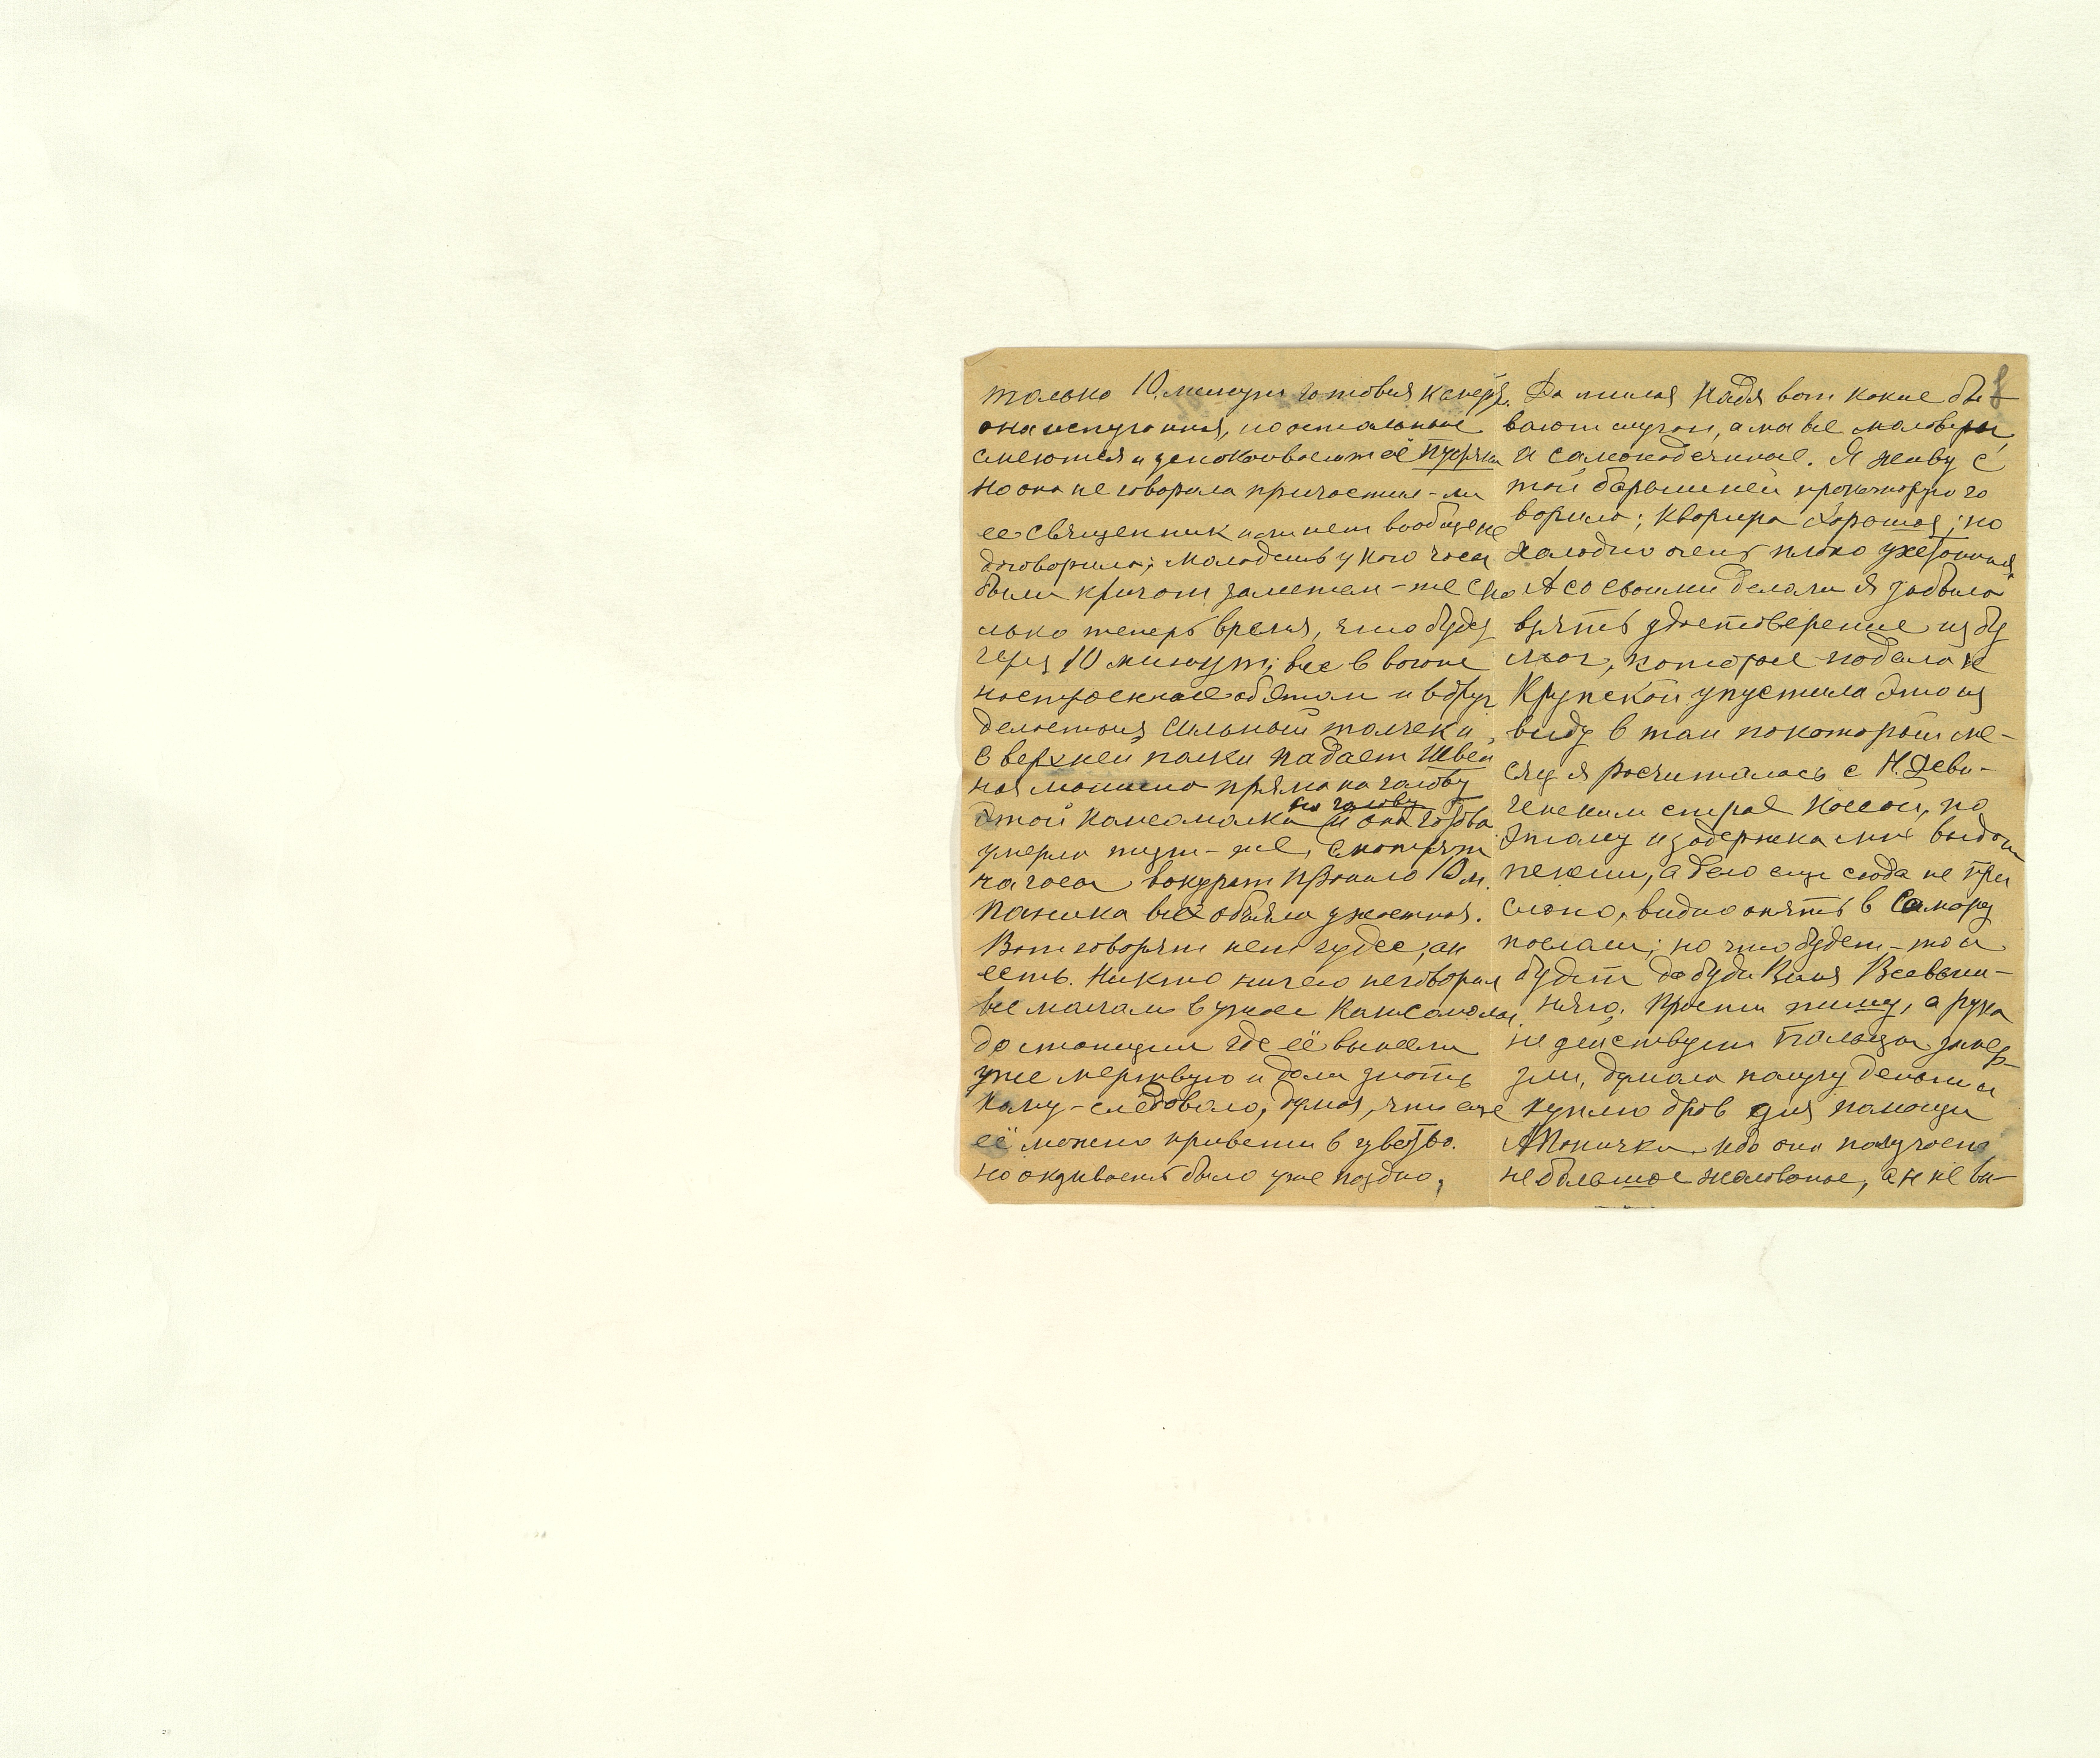 только 10 минут готовься к смерти.
она испуганная, но остальные
смеются и успокоивают её Пустяки
но она не говорила причастил-ли
ее священник или нет вообще не
договорила; молодеж у кого часы
были кричат заметем-же ско
лько теперь время, что будет
через 10 минут; все в вагоне
настроенные об этом и вдруг
делается сильный толчек и
с верхней полки падает Швей
ная машина прямо на голову
этой Комсомолки и она готова
на голову
умерла тут-же, смотрят
на часы вокурат прошло 10 м.
Паника всех объяла ужастная.
Вот говорят нет чудес, ан
есть. Никто ничего не говорил
все молчали в ужасе Комсомолы,
до станции где её вынесли
уже мертвую и дали знать
кому-следовало, думая, что еще
её можно привести в чувство.
но оказывается было уже поздно,
Да милая Надя вот какие бы-
вают случаи, а мы все маловеры
и самонадеянные. Я живу с
той барышней про которую го
ворила; квартира хорошая, но
холодно очень плохо ужетопили
А со своими делами я забыла
взять удостоверение из бу
маг, которые подала к
Крупской упустила это из
виду в том по который ме-
сяц я расчиталась с Н. Деви-
ченским страх Кассой, по
этому и задержка мне выдать
пенсии, а дело еще сюда не при
слано, видно опять в Самару
послали; но что будет-то и
будет да буди Воля Всевыш-
няго. Прости пишу, а рука
не действует Пальцы замер-
зли, думаю получу деньги и
куплю дров для помощи
А Тоничка ибо она получает
небольшое жалованье, а я не ви-